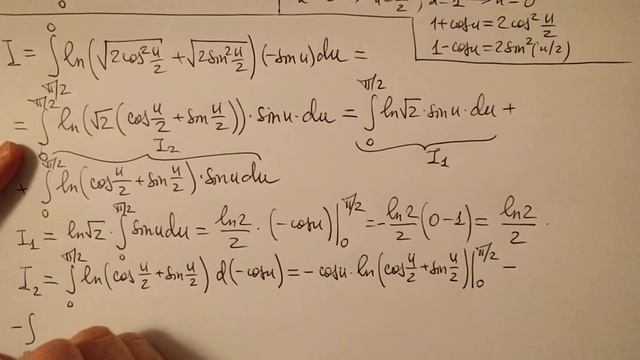 1+cosu = 2cos²u/2
1-cosu = 2sin²(u/2)
I = ∫_{π/2}^{0} ln(√(2cos²u/2) + √(2sin²u/2)) (-sinu)du =
= ∫_{0}^{π/2} ln(√2(cos u/2 + sin u/2))·sinu·du = ∫_{0}^{π/2} ln√2·sinu·du +
I₂ I₁
+ ∫_{0}^{π/2} ln(cos u/2 + sin u/2)·sinudu
I₁ = ln√2·∫_{0}^{π/2} sinudu = ln2/2·(-cosu)|_{0}^{π/2} = -ln2/2(0-1) = ln2/2.
I₂ = ∫_{0}^{π/2} ln(cos u/2 + sin u/2) d(-cosu) = -cosu·ln(cos u/2 + sin u/2)|_{0}^{π/2} -
-∫